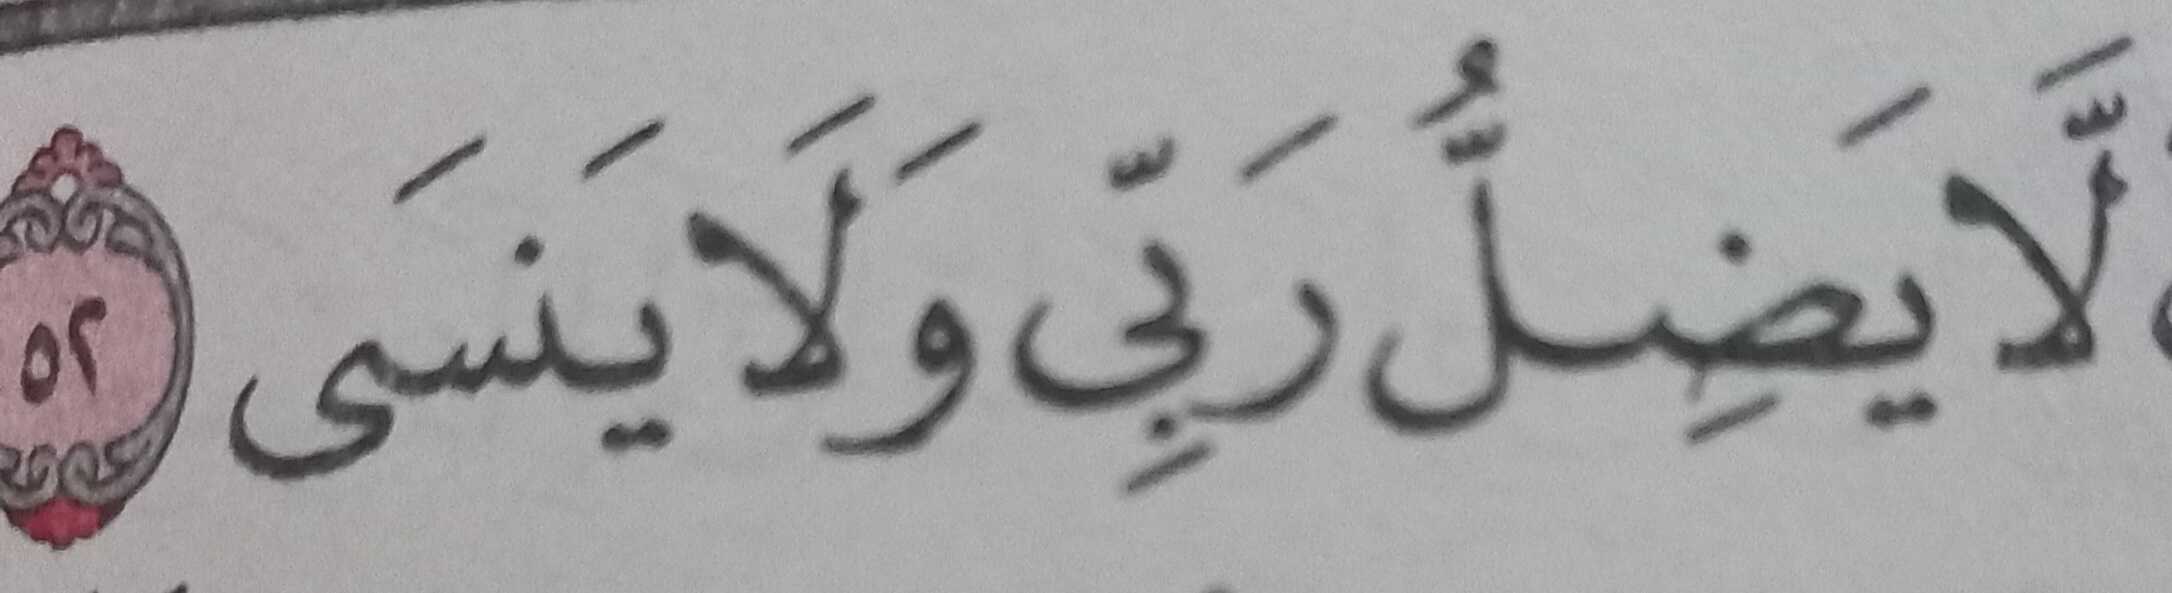 لَّا يَضِلُّ رَبِّي وَلَا يَنسَى ٥٢